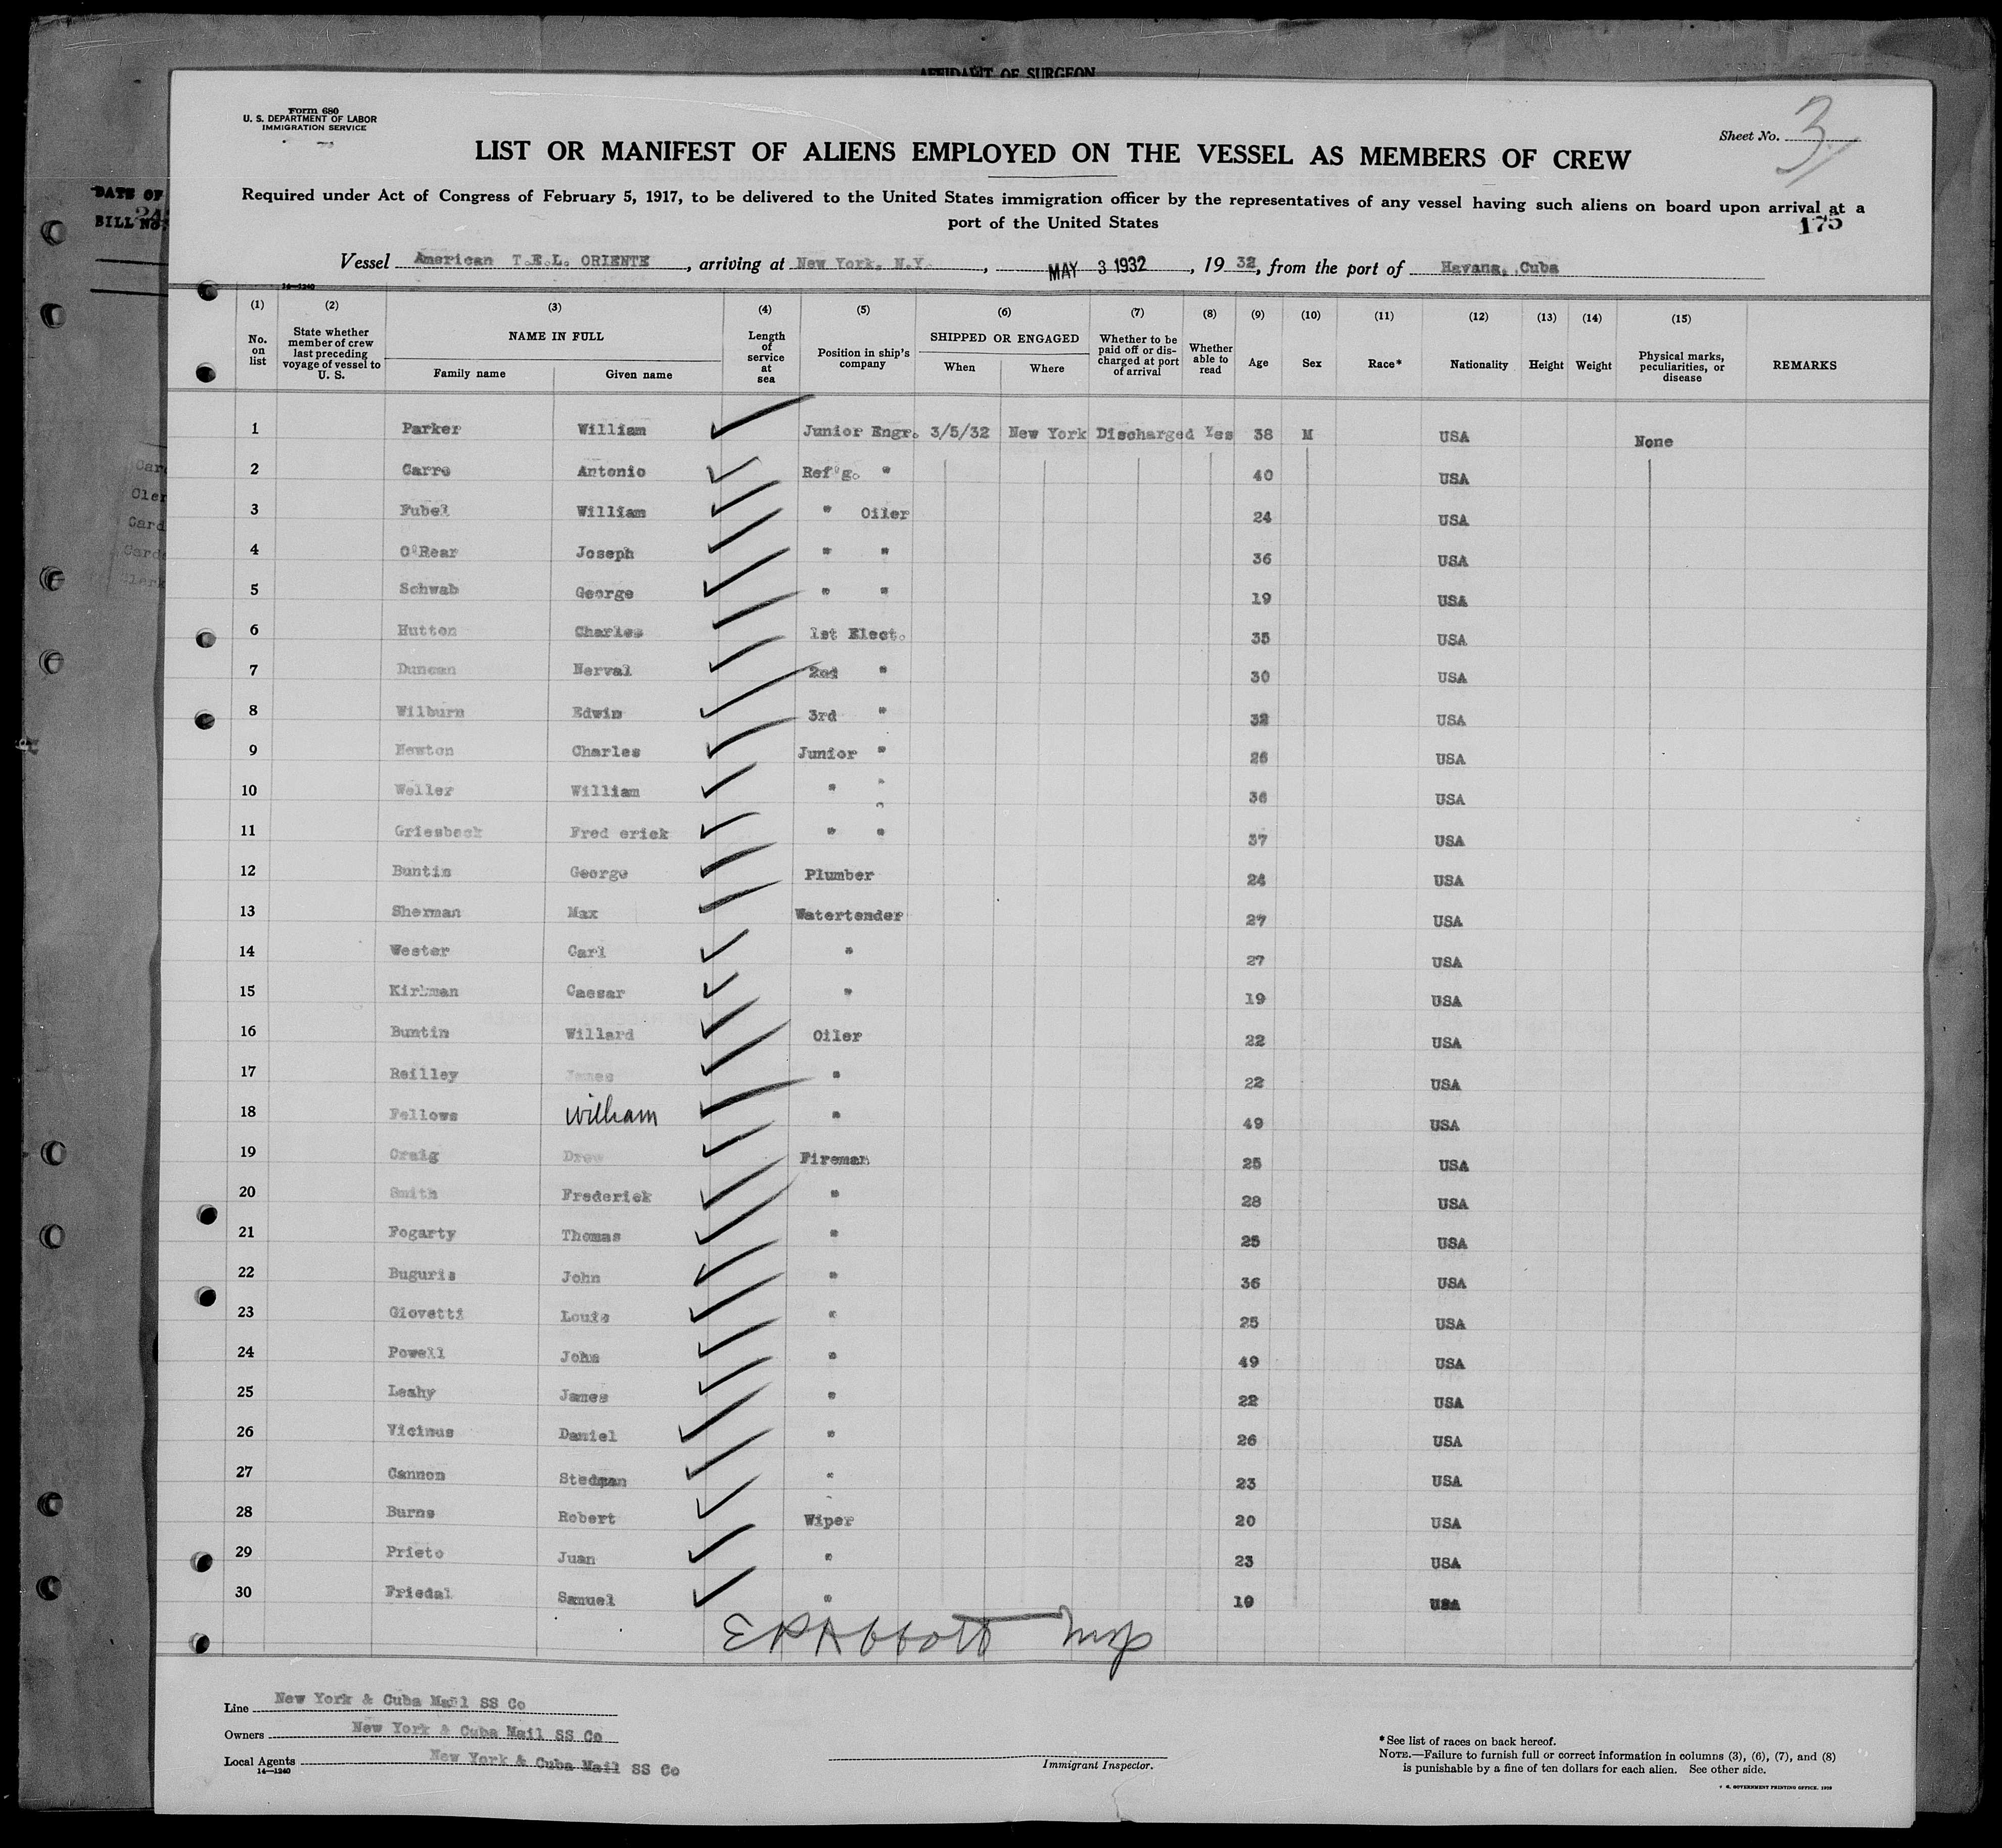 AFFIDAVIT OF SURGEON
Form 680
U. S. DEPARTMENT OF LABOR
IMMIGRATION SERVICE
Sheet No. 3
LIST OR MANIFEST OF ALIENS EMPLOYED ON THE VESSEL AS MEMBERS OF CREW
Required under Act of Congress of February 5, 1917, to be delivered to the United States immigration officer by the representatives of any vessel having such aliens on board upon arrival at a
port of the United States
175
DATE OF
BILL NO.
Vessel American T.E.L. ORIENTE, arriving at New York, N.Y., MAY 3 1932, 1932, from the port of Havana, Cuba
14—1240
(1) (2) (3) (4) (5) (6) (7) (8) (9) (10) (11) (12) (13) (14) (15)
No. on list State whether member of crew last preceding voyage of vessel to U. S. NAME IN FULL Family name Given name Length of service at sea Position in ship's company SHIPPED OR ENGAGED When Where Whether to be paid off or discharged at port of arrival Whether able to read Age Sex Race* Nationality Height Weight Physical marks, peculiarities, or disease REMARKS
1 Parker William Junior Engr. 3/5/32 New York Discharged Yes 38 M USA None
2 Carro Antonio Ref'g. " 40 USA
3 Fubel William " Oiler 24 USA
4 O'Rear Joseph " " 36 USA
5 Schwab George " " 19 USA
6 Hutton Charles 1st Elect. 35 USA
7 Duncan Nerval 2nd " 30 USA
8 Wilburn Edwin 3rd " 32 USA
9 Newton Charles Junior " 26 USA
10 Weller William " " 36 USA
11 Griesbeck Fred erick " " 37 USA
12 Buntin George Plumber 24 USA
13 Sherman Max Watertender 27 USA
14 Wester Carl " 27 USA
15 Kirkman Caesar " 19 USA
16 Buntin Willard Oiler 22 USA
17 Reilley James " 22 USA
18 Fellows William " 49 USA
19 Craig Drew Fireman 25 USA
20 Smith Frederick " 28 USA
21 Fogarty Thomas " 25 USA
22 Buguris John " 36 USA
23 Giovetti Louis " 25 USA
24 Powell John " 49 USA
25 Leahy James " 22 USA
26 Vicinus Daniel " 26 USA
27 Cannon Stedman " 23 USA
28 Burns Robert Wiper 20 USA
29 Prieto Juan " 23 USA
30 Friedal Samuel " 19 USA
E A Abbott
Line New York & Cuba Mail SS Co
Owners New York & Cuba Mail SS Co
Local Agents New York & Cuba Mail SS Co
14—1240
Immigrant Inspector.
*See list of races on back hereof.
NOTE.—Failure to furnish full or correct information in columns (3), (6), (7), and (8)
is punishable by a fine of ten dollars for each alien. See other side.
U. S. GOVERNMENT PRINTING OFFICE, 1929